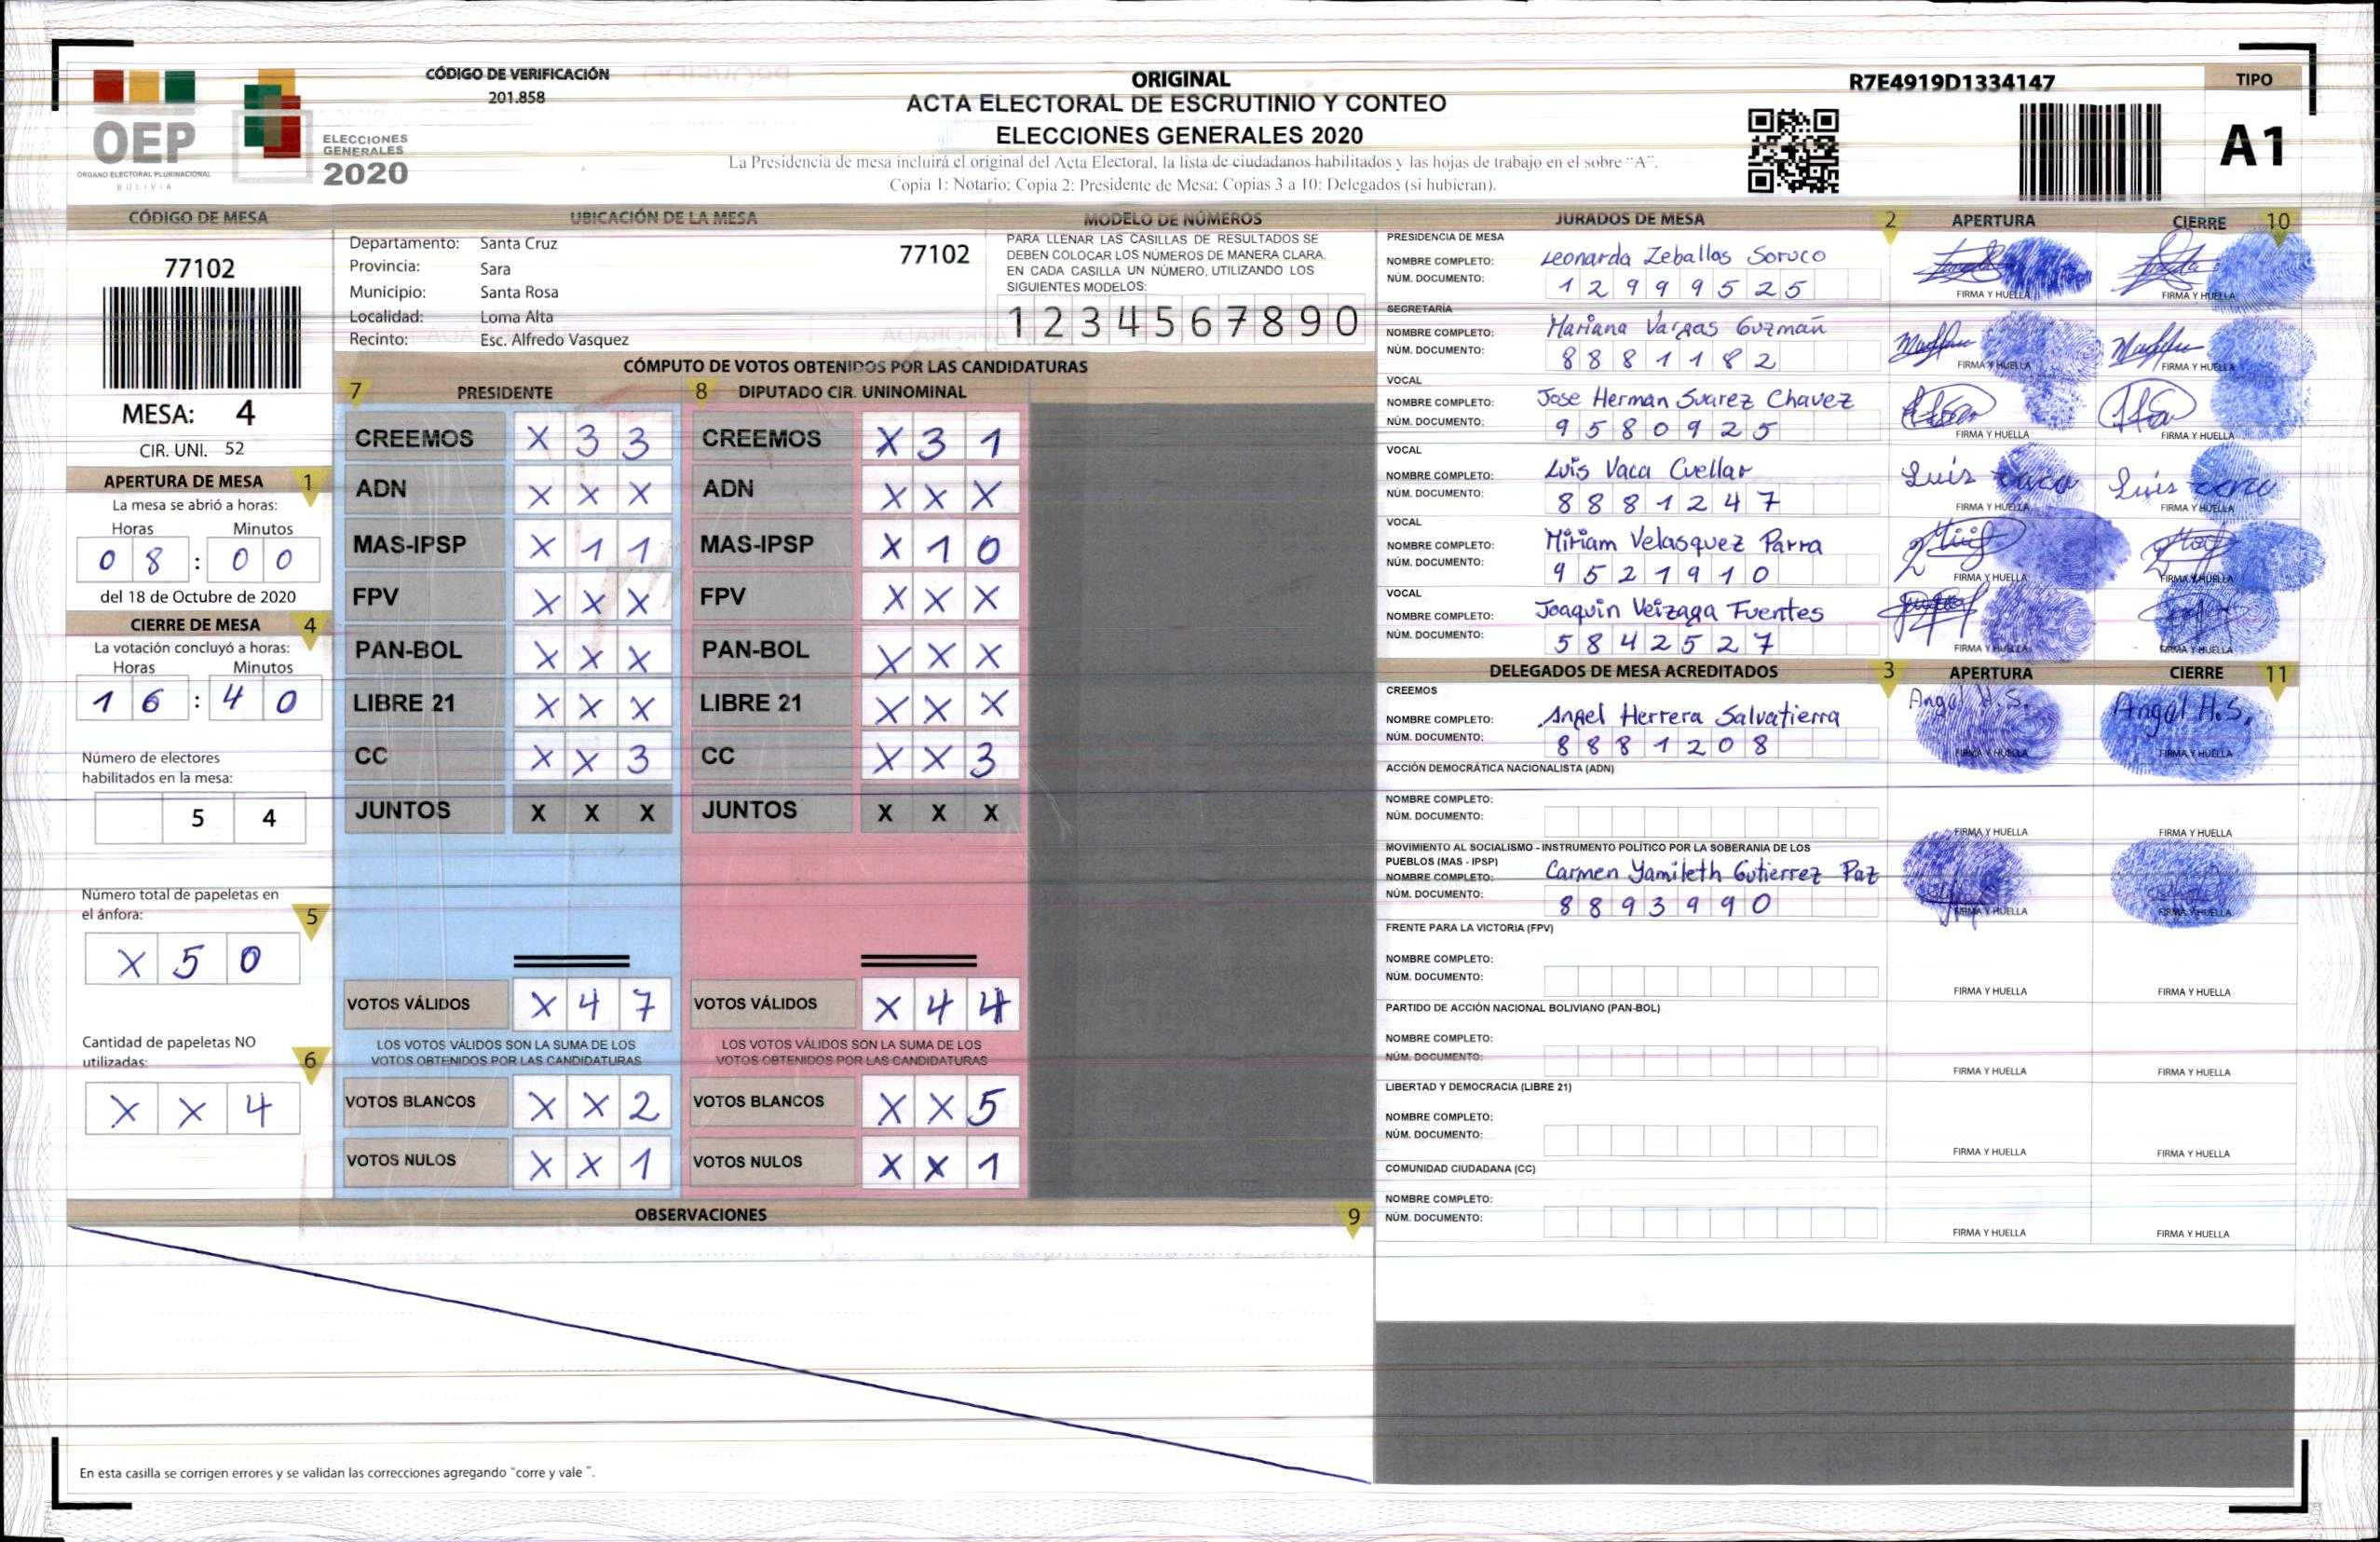 CÓDIGO DE VERIFICACIÓN
201.858
ORIGINAL
ACTA ELECTORAL DE ESCRUTINIO Y CONTEO
ELECCIONES GENERALES 2020
La Presidencia de mesa incluirá el original del Acta Electoral, la lista de ciudadanos habilitados y las hojas de trabajo en el sobre "A".
Copia 1: Notario; Copia 2: Presidente de Mesa; Copias 3 a 10: Delegados (si hubieran).
R7E4919D1334147
TIPO
A1
OEP
ÓRGANO ELECTORAL PLURINACIONAL
BOLIVIA
ELECCIONES
GENERALES
2020
CÓDIGO DE MESA
77102
MESA: 4
CIR. UNI. 52
UBICACIÓN DE LA MESA
Departamento: Santa Cruz
77102
Provincia: Sara
Municipio: Santa Rosa
Localidad: Loma Alta
Recinto: Esc. Alfredo Vasquez
MODELO DE NÚMEROS
PARA LLENAR LAS CASILLAS DE RESULTADOS SE
DEBEN COLOCAR LOS NÚMEROS DE MANERA CLARA.
EN CADA CASILLA UN NÚMERO, UTILIZANDO LOS
SIGUIENTES MODELOS:
1 2 3 4 5 6 7 8 9 0
APERTURA DE MESA 1
La mesa se abrió a horas:
Horas Minutos
0 8 : 0 0
del 18 de Octubre de 2020
CIERRE DE MESA 4
La votación concluyó a horas:
Horas Minutos
1 6 : 4 0
Número de electores
habilitados en la mesa:
5 4
Número total de papeletas en
el ánfora: 5
X 5 0
Cantidad de papeletas NO
utilizadas: 6
X X 4
CÓMPUTO DE VOTOS OBTENIDOS POR LAS CANDIDATURAS
7 PRESIDENTE 8 DIPUTADO CIR. UNINOMINAL
CREEMOS X 3 3 CREEMOS X 3 1
ADN X X X ADN X X X
MAS-IPSP X 1 1 MAS-IPSP X 1 0
FPV X X X FPV X X X
PAN-BOL X X X PAN-BOL X X X
LIBRE 21 X X X LIBRE 21 X X X
CC X X 3 CC X X 3
JUNTOS X X X JUNTOS X X X
VOTOS VÁLIDOS X 4 7 VOTOS VÁLIDOS X 4 4
LOS VOTOS VÁLIDOS SON LA SUMA DE LOS LOS VOTOS VÁLIDOS SON LA SUMA DE LOS
VOTOS OBTENIDOS POR LAS CANDIDATURAS VOTOS OBTENIDOS POR LAS CANDIDATURAS
VOTOS BLANCOS X X 2 VOTOS BLANCOS X X 5
VOTOS NULOS X X 1 VOTOS NULOS X X 1
OBSERVACIONES 9
En esta casilla se corrigen errores y se validan las correcciones agregando "corre y vale ".
JURADOS DE MESA 2 APERTURA CIERRE 10
PRESIDENCIA DE MESA
NOMBRE COMPLETO: Leonarda Zeballos Soruco
NÚM. DOCUMENTO: 1 2 9 9 9 5 2 5
FIRMA Y HUELLA FIRMA Y HUELLA
SECRETARÍA
NOMBRE COMPLETO: Mariana Vargas Guzmán
NÚM. DOCUMENTO: 8 8 8 1 1 8 2
FIRMA Y HUELLA FIRMA Y HUELLA
VOCAL
NOMBRE COMPLETO: Jose Herman Suarez Chavez
NÚM. DOCUMENTO: 9 5 8 0 9 2 5
FIRMA Y HUELLA FIRMA Y HUELLA
VOCAL
NOMBRE COMPLETO: Luis Vaca Cuellar
NÚM. DOCUMENTO: 8 8 8 1 2 4 7
Luis Vaca Luis
FIRMA Y HUELLA FIRMA Y HUELLA
VOCAL
NOMBRE COMPLETO: Miriam Velasquez Parra
NÚM. DOCUMENTO: 9 5 2 1 9 1 0
FIRMA Y HUELLA FIRMA Y HUELLA
VOCAL
NOMBRE COMPLETO: Joaquin Veizaga Fuentes
NÚM. DOCUMENTO: 5 8 4 2 5 2 7
FIRMA Y HUELLA FIRMA Y HUELLA
DELEGADOS DE MESA ACREDITADOS 3 APERTURA CIERRE 11
CREEMOS
NOMBRE COMPLETO: Angel Herrera Salvatierra
NÚM. DOCUMENTO: 8 8 8 1 2 0 8
Angel H.S. Angel H.S.
FIRMA Y HUELLA FIRMA Y HUELLA
ACCIÓN DEMOCRÁTICA NACIONALISTA (ADN)
NOMBRE COMPLETO:
NÚM. DOCUMENTO:
FIRMA Y HUELLA FIRMA Y HUELLA
MOVIMIENTO AL SOCIALISMO - INSTRUMENTO POLÍTICO POR LA SOBERANIA DE LOS
PUEBLOS (MAS - IPSP)
NOMBRE COMPLETO: Carmen Yamileth Gutierrez Paz
NÚM. DOCUMENTO: 8 8 9 3 9 9 0
FIRMA Y HUELLA FIRMA Y HUELLA
FRENTE PARA LA VICTORIA (FPV)
NOMBRE COMPLETO:
NÚM. DOCUMENTO:
FIRMA Y HUELLA FIRMA Y HUELLA
PARTIDO DE ACCIÓN NACIONAL BOLIVIANO (PAN-BOL)
NOMBRE COMPLETO:
NÚM. DOCUMENTO:
FIRMA Y HUELLA FIRMA Y HUELLA
LIBERTAD Y DEMOCRACIA (LIBRE 21)
NOMBRE COMPLETO:
NÚM. DOCUMENTO:
FIRMA Y HUELLA FIRMA Y HUELLA
COMUNIDAD CIUDADANA (CC)
NOMBRE COMPLETO:
NÚM. DOCUMENTO:
FIRMA Y HUELLA FIRMA Y HUELLA